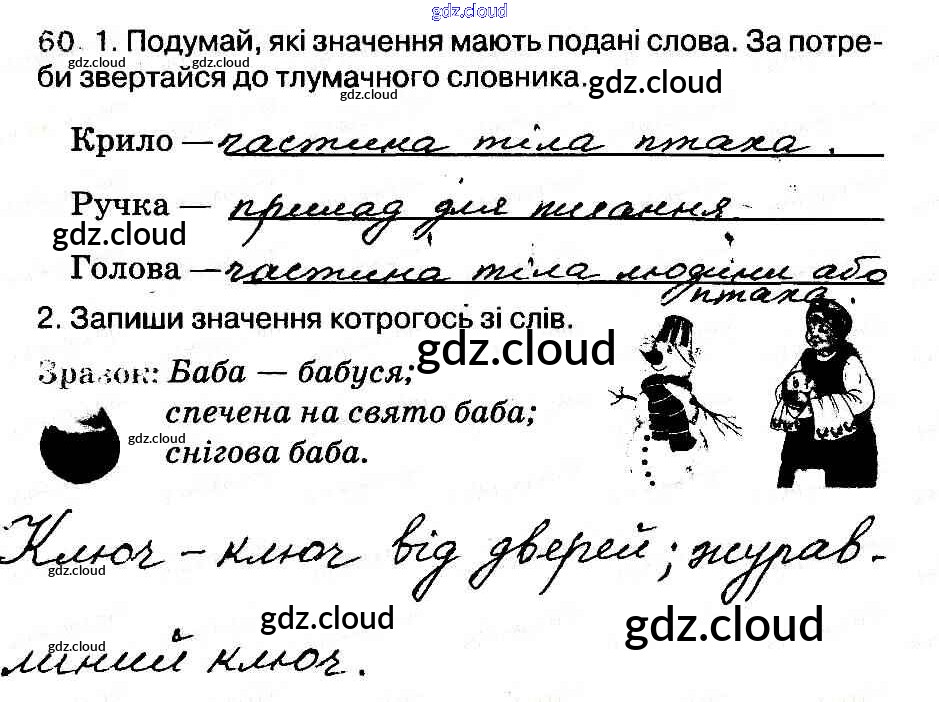 gdz.cloud
60. 1. Подумай, які значення мають подані слова. За потре-
gdz.cloud gdz.cloud
би звертайся до тлумачного словника. gdz.cloud
gdz.cloud
Крило — частина тіла птаха.
Ручка — прилад для писання
gdz.cloud
Голова — частина тіла людини або
птаха.
2. Запиши значення котрогось зі слів.
gdz.cloud
Зразок: Баба — бабуся;
спечена на свято баба;
gdz.cloud
снігова баба.
Ключ - ключ від дверей; журав-
gdz.cloud
gdz.cloud gdz.cloud
линий ключ.